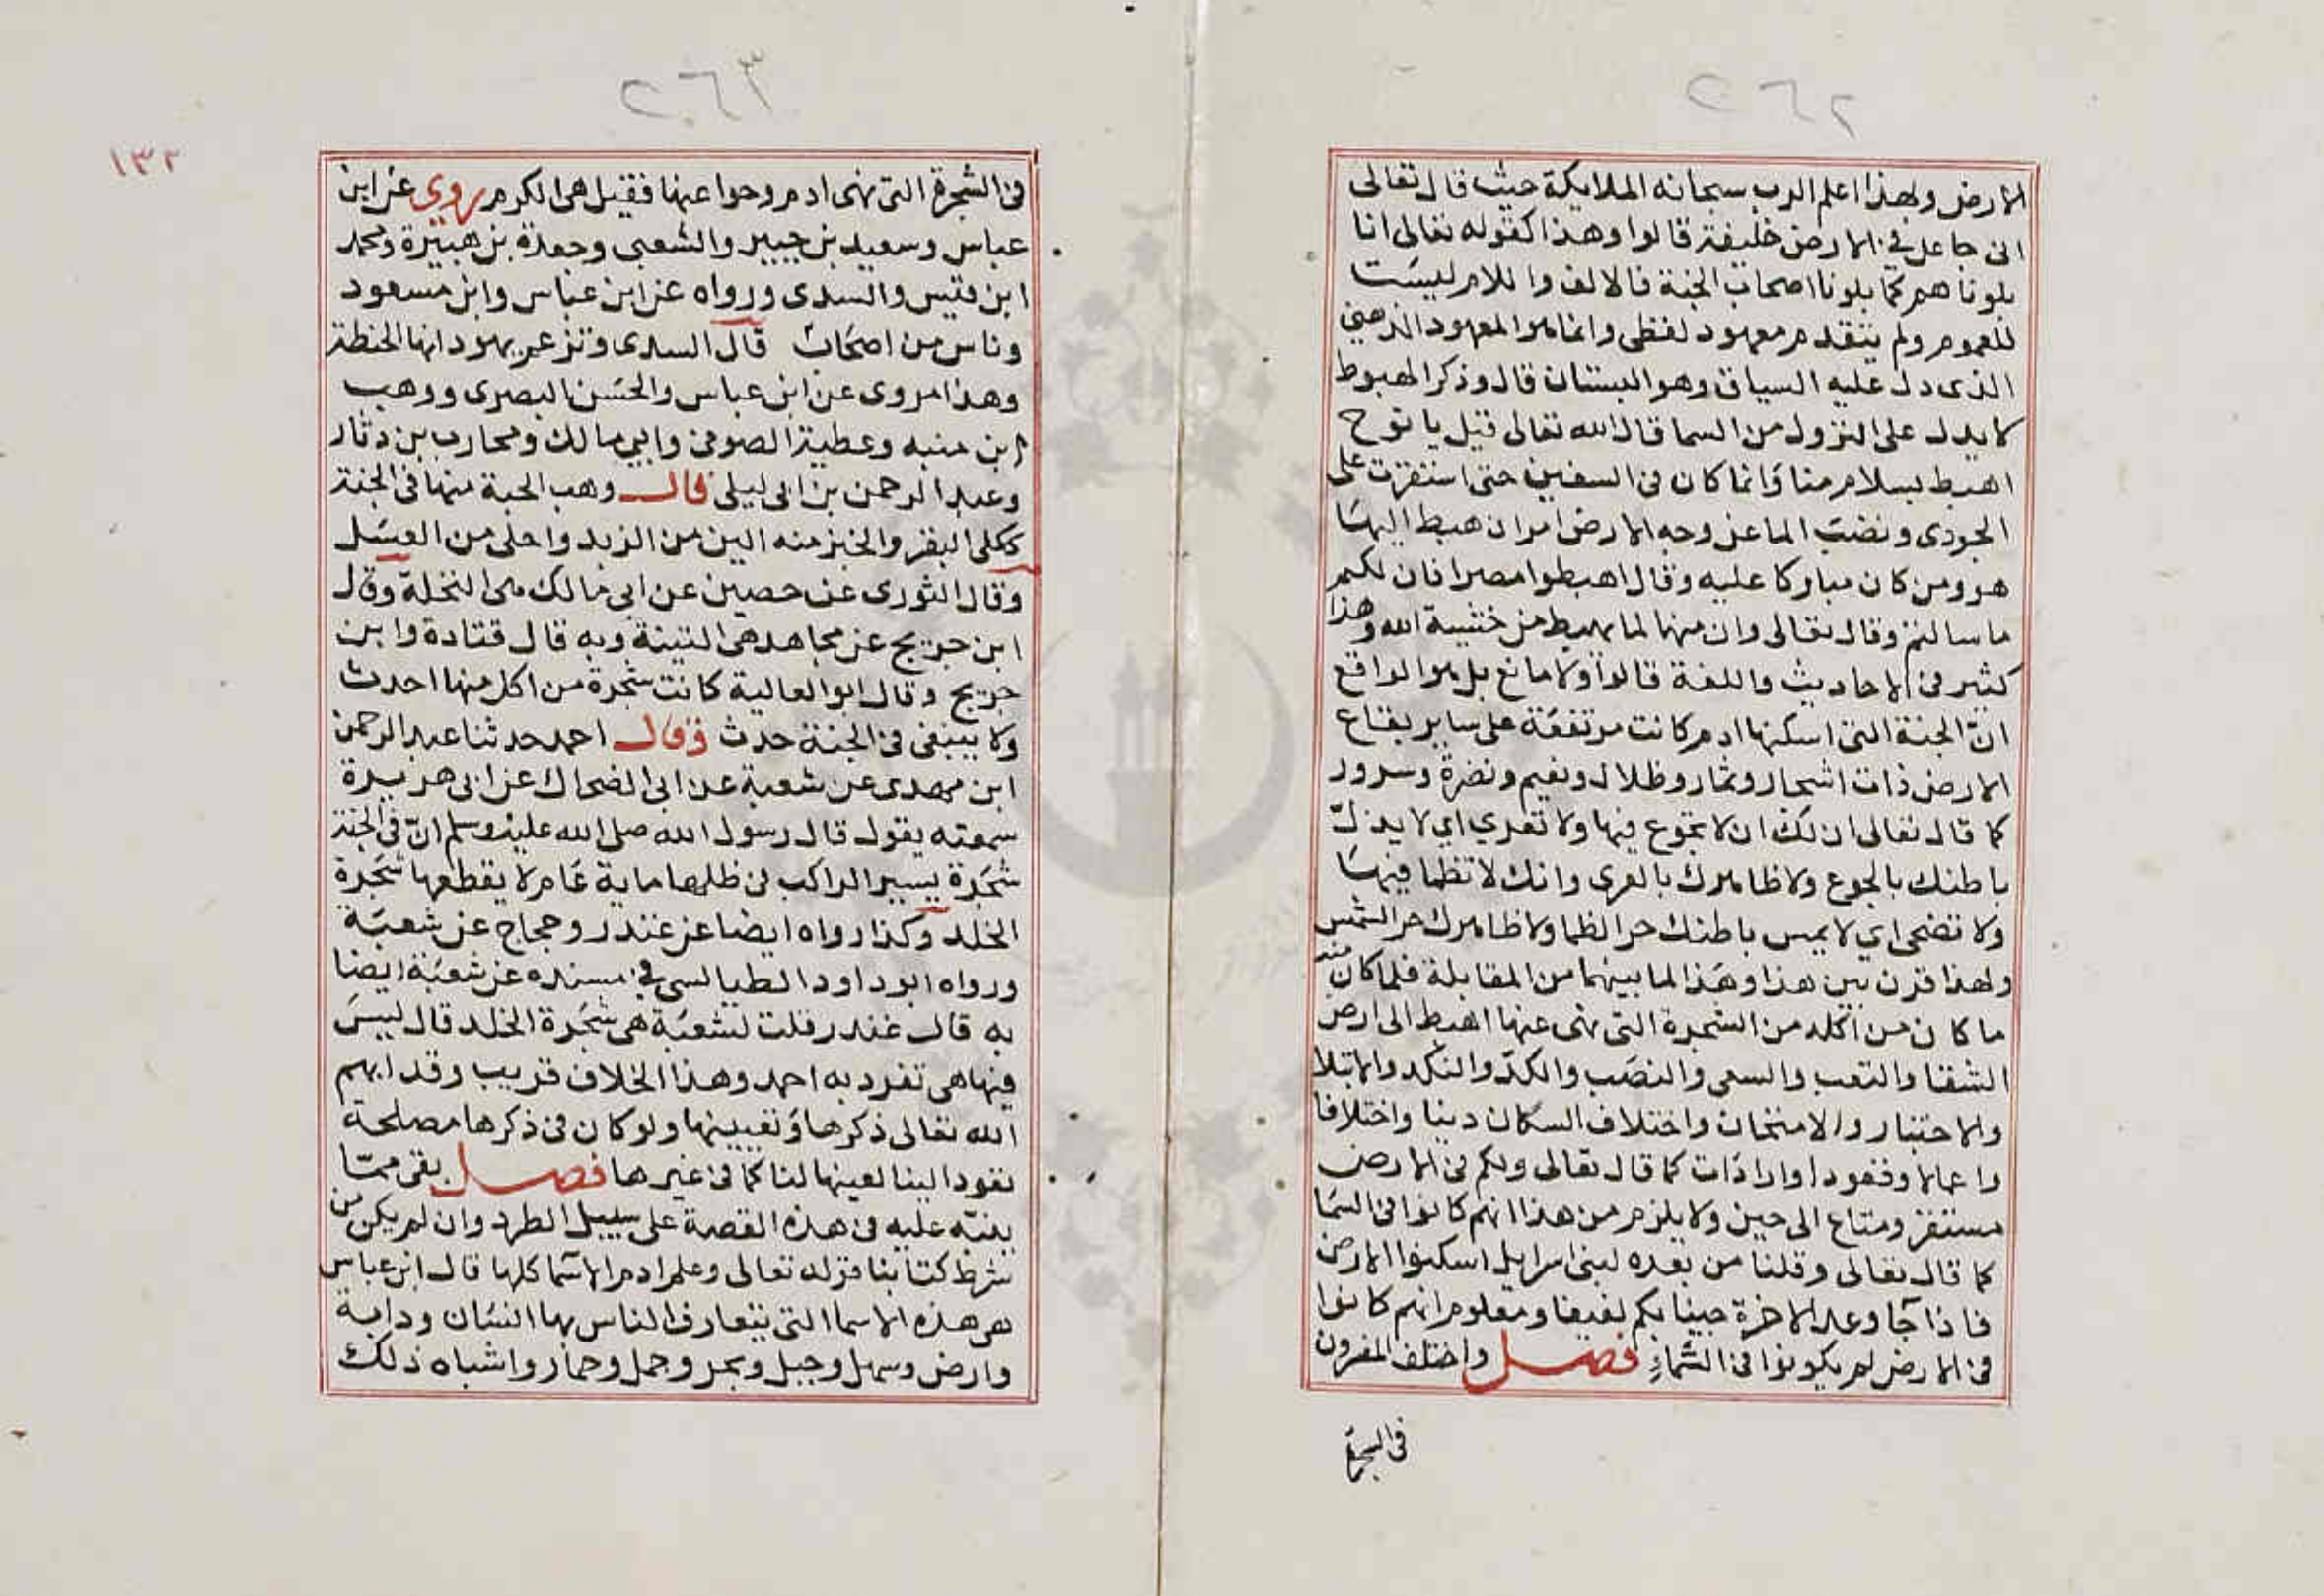 ٢٦٢
الارض ولهذا اعلم الرب سبحانه الملايكة حيث قال تعالى
انى جاعل في الارض خليفة قالوا وهذا كقوله تعالى انا
بلوناهم كما بلونا اصحاب الجنة فالالف واللام ليست
للعموم ولم يتقدم معهود لفظي وانما هو المعهود الذهني
الذى دل عليه السياق وهو البستان قال وذكر الهبوط
لا يدل على النزول من السما قال الله تعالى قيل يا نوح
اهبط بسلام منا وانما كان في السفين حتى استقرت على
الجودى ونضب الما عن وجه الارض امر ان هبط اليها
هو ومن كان مباركا عليه وقال اهبطوا مصرا فان لكم
ما سالتم وقال تعالى وان منها لما يهبط من خشية الله وهذا
كثير في الاحاديث واللغة قالوا ولا مانع بل هو الواقع
انّ الجنة التى اسكنها ادم كانت مرتفعة على ساير بقاع
الارض ذات اشجار وثمار وظلال ونعيم ونضرة وسرور
كما قال تعالى ان لك ان لا تجوع فيها ولا تعرى اي لا يذلّ
باطنك بالجوع ولا ظاهرك بالعرى وانك لا تظما فيها
ولا تضحى اي لا يمس باطنك حر الظما ولا ظاهرك حر الشمس
ولهذا قرن بين هذا وهذا لما بينهما من المقابلة فلما كان منه
ما كان من اكله من الشجرة التى نهى عنها اهبط الى ارض
الشقا والتعب والسعى والنصب والكدّ والنكد والابتلا
والاختبار والامتحان واختلاف السكان دينا واختلافا
واعمالا وقعودا وارادات كما قال تعالى ولكم في الارض
مستقر ومتاع الى حين ولا يلزم من هذا انهم كانوا في السما
كما قال تعالى وقلنا من بعده لبنى اسرايل اسكنوا الارض
فاذا جا وعد الاخرة جينا بكم لفيفا ومعلوم انهم كانوا
في الارض لم يكونوا في السماءِ فصل واختلف المفرون
في الشجرة
٢٦٣
١٣٢
في الشجرة التى نهى ادم وحوا عنها فقيل هى الكرم روي عن ابن
عباس وسعيد بن جبير والشعبى وجعدة بن هبيرة ومحمد
ابن قيس والسدى ورواه عن ابن عباس وابن مسعود
وناس من اصحاب قال السدى وتزعم يهود انها الحنطة
وهذا مروى عن ابن عباس والحسن البصرى ووهب
ابن منبه وعطية الصوفى وابي مالك ومحارب بن دثار
وعبد الرحمن بن ابى ليلى قال وهب الحبة منها في الجنة
ككلى البقر والخبز منه الين من الزبد واحلى من العسل
وقال الثورى عن حصين عن ابي مالك هى النخلة وقال
ابن جريج عن مجاهد هى التينة وبه قال قتادة وابن
جريج وقال ابو العالية كانت شجرة من اكل منها احدث
ولا ينبغى في الجنة حدث وقال احمد حدثنا عبد الرحمن
ابن مهدى عن شعبة عن ابى الضحاك عن ابى هريرة
سمعته يقول قال رسول الله صلى الله عليه وسلم انّ في الجنة
شجرة يسير الراكب في ظلها ماية عام لا يقطعها شجرة
الخلد وكذا رواه ايضا عن غندر وحجاج عن شعبة
ورواه ابو داود الطيالسى في مسنده عن شعبة ايضا
به قال غندر قلت لشعبة هى شجرة الخلد قال ليس
فيها هى تفرد به احمد وهذا الخلاف قريب وقد ابهم
الله تعالى ذكرها وتعيينها ولو كان في ذكرها مصلحة
تعود الينا لعينها لنا كما في غيرها فصل بقى ممّا
ينبّه عليه في هذه القصة على سبيل الطرد وان لم يكن من
شرط كتابنا قوله تعالى وعلم ادم الاسما كلها قال ابن عباس
هى هذه الاسما التى يتعارف الناس بها انسان ودابة
وارض وسهل وجبل وبحر وجمل وحمار واشباه ذلك